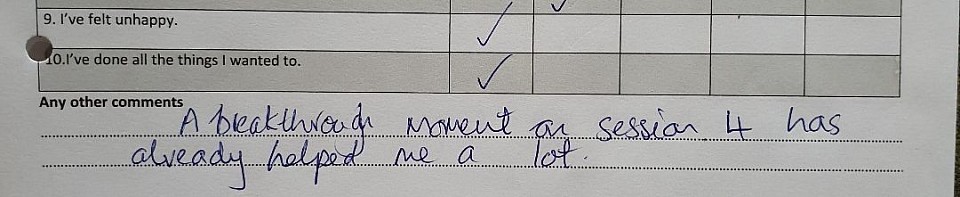 9. I've felt unhappy. ✓
10.I've done all the things I wanted to. ✓
Any other comments
A breakthrough moment on session 4 has
already helped me a lot.